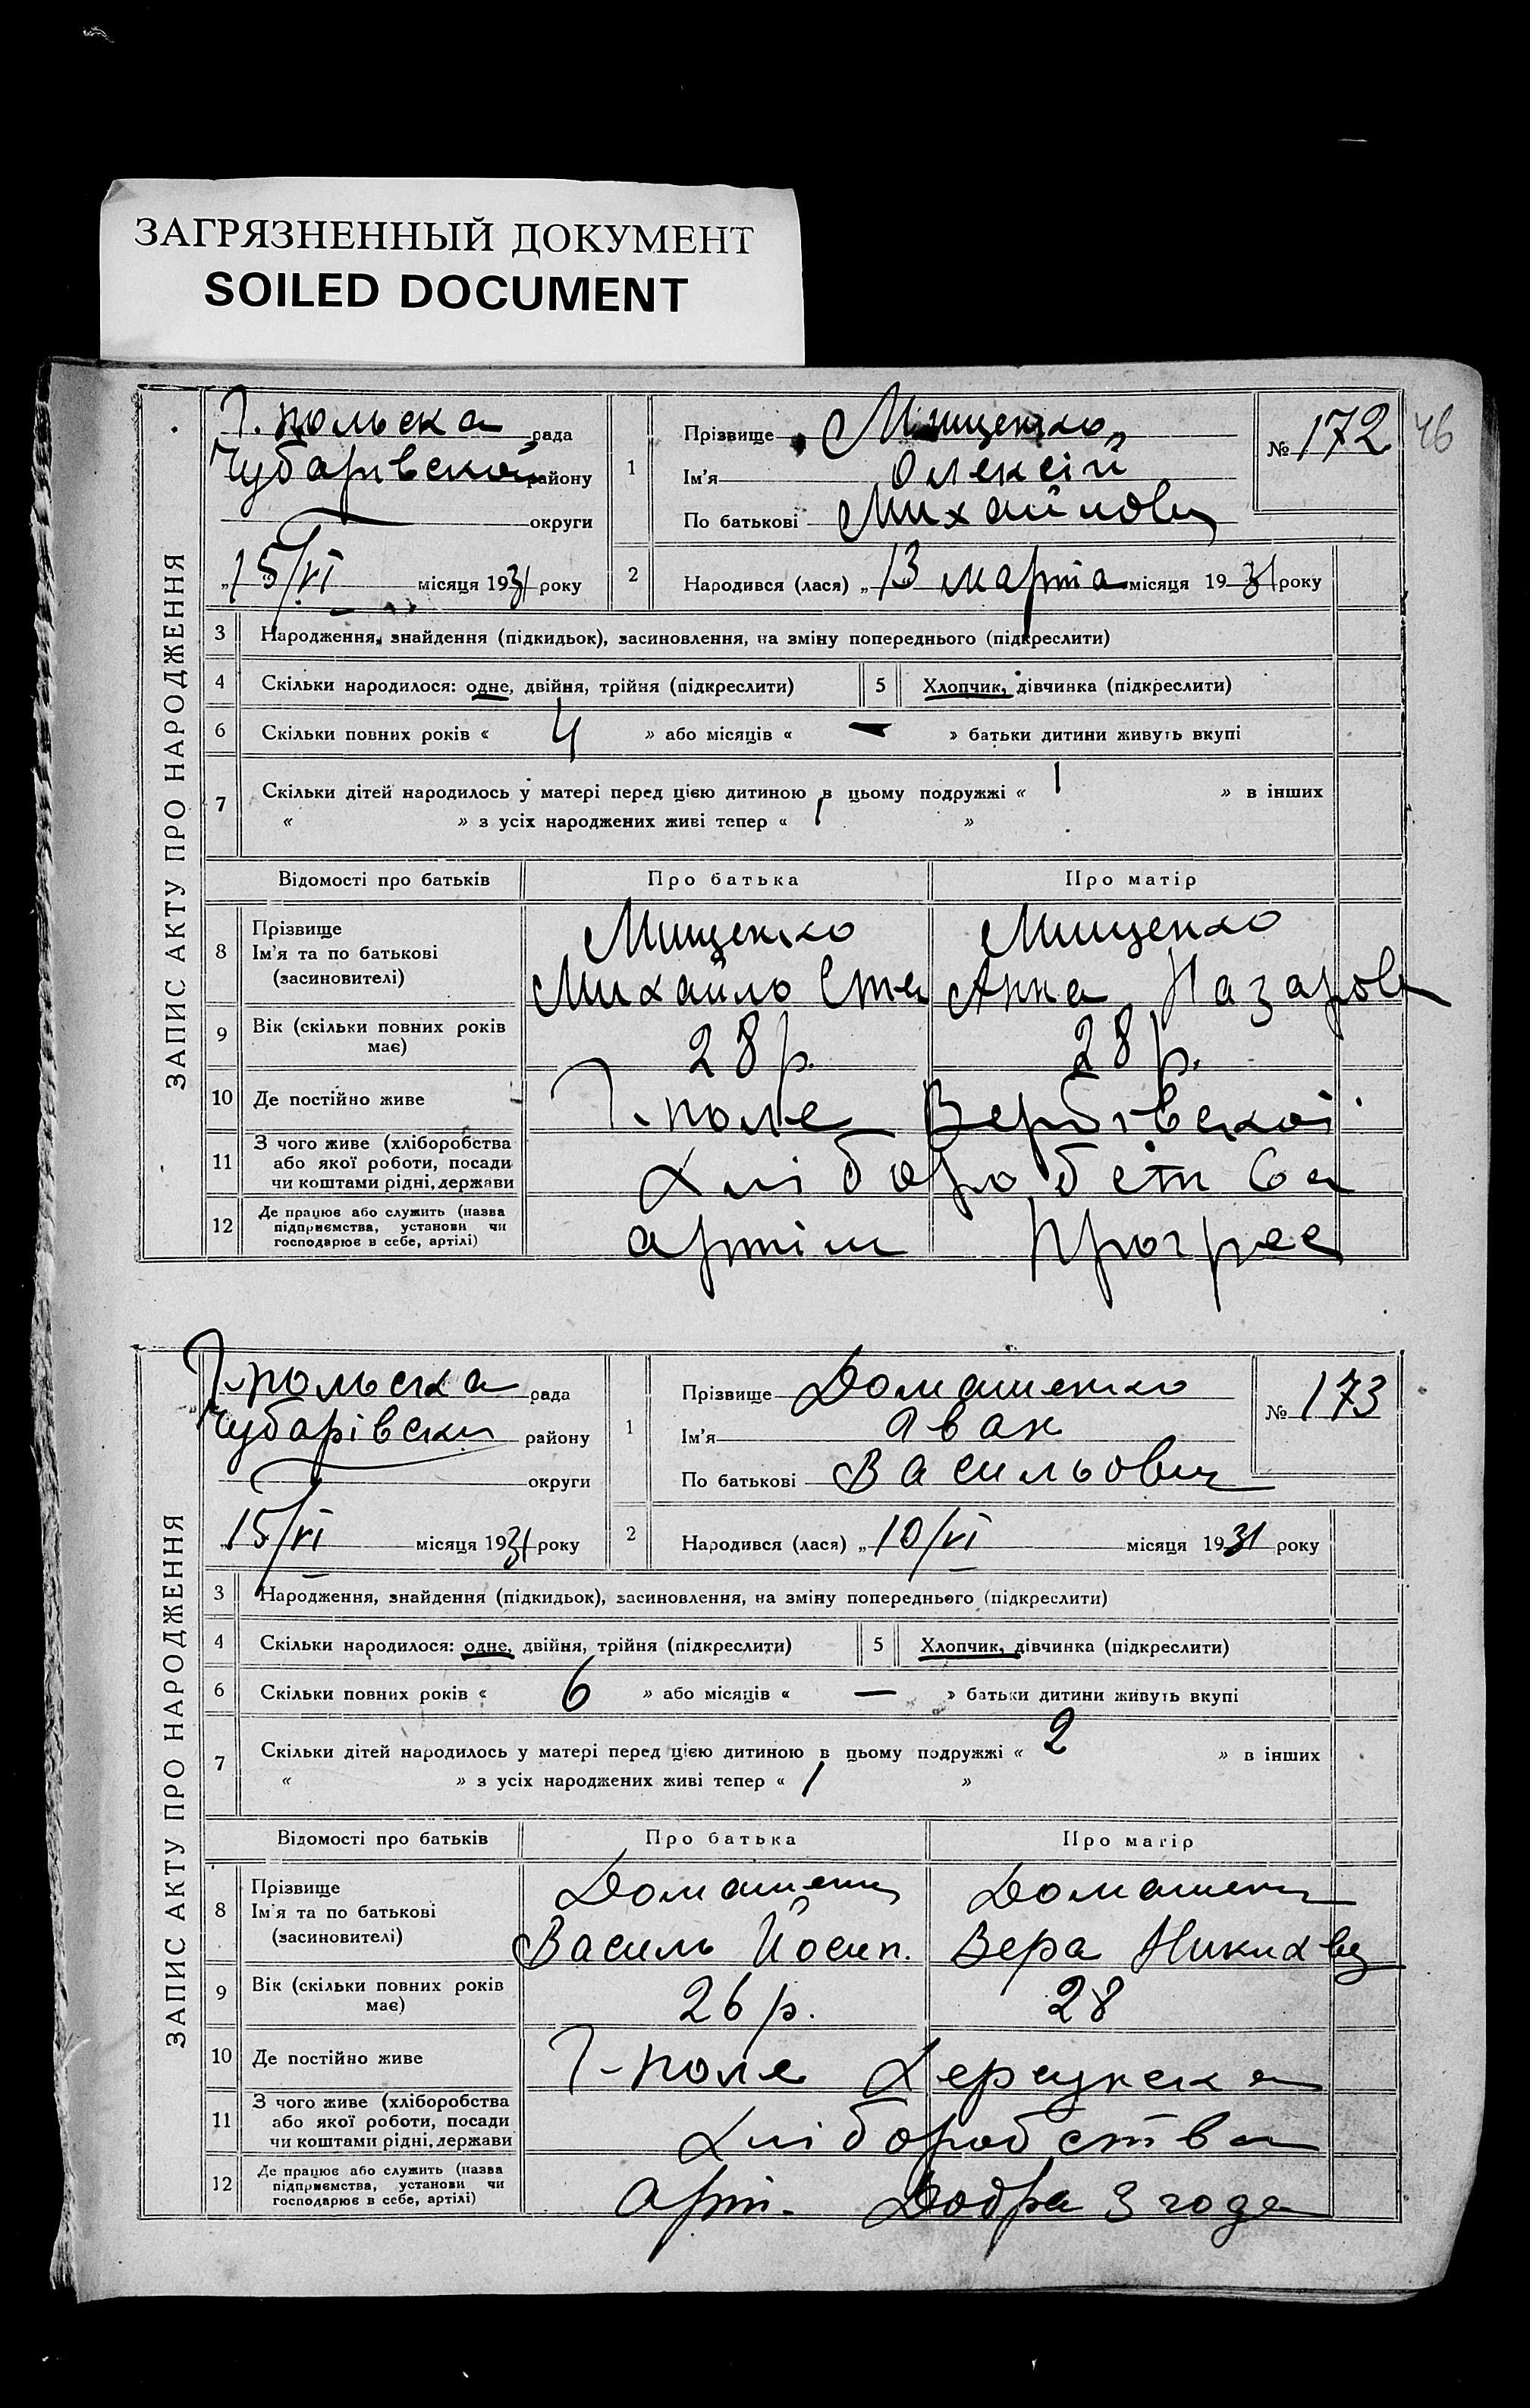 ЗАГРЯЗНЕННЫЙ ДОКУМЕНТ
SOILED DOCUMENT
46
ЗАПИС АКТУ ПРО НАРОДЖЕННЯ
Г. польска рада
Чубарівской району
округи
„15/VI місяця 1931 року
1 Прізвище Мищенко
Ім'я Олексій
По батькові Михайлов
№ 172
2 Народився (лася) „13 марта місяця 1931 року
3 Народження, знайдення (підкидьок), засиновлення, на зміну попереднього (підкреслити)
4 Скільки народилося: одне, двійня, трійня (підкреслити) 5 Хлопчик, дівчинка (підкреслити)
6 Скільки повних років « 4 » або місяців « — » батьки дитини живуть вкупі
7 Скільки дітей народилось у матері перед цією дитиною в цьому подружжі « 1 » в інших
« » з усіх народжених живі тепер « 1 »
Відомості про батьків Про батька Про матір
8 Прізвище
Ім'я та по батькові
(засиновителі)
Мищенко Мищенко
Михайло Сте Анна Назаров
9 Вік (скільки повних років
має)
28 р. 28 р.
10 Де постійно живе Г-поле Вербівской
11 З чого живе (хліборобства
або якої роботи, посади
чи коштами рідні, держави
хліборобства
12 Де працює або служить (назва
підприємства, установи чи
господарює в себе, артілі)
артіли Прогрес
ЗАПИС АКТУ ПРО НАРОДЖЕННЯ
Г-польска рада
Чубарівски району
округи
„15/VI місяця 1931 року
1 Прізвище Домашенко
Ім'я Иван
По батькові Васильович
№ 173
2 Народився (лася) „10/VI місяця 1931 року
3 Народження, знайдення (підкидьок), засиновлення, на зміну попереднього (підкреслити)
4 Скільки народилося: одне, двійня, трійня (підкреслити) 5 Хлопчик, дівчинка (підкреслити)
6 Скільки повних років « 6 » або місяців « — » батьки дитини живуть вкупі
7 Скільки дітей народилось у матері перед цією дитиною в цьому подружжі « 2 » в інших
« » з усіх народжених живі тепер « 1 »
Відомості про батьків Про батька Про матір
8 Прізвище
Ім'я та по батькові
(засиновителі)
Домашенк Домашенк
Василь Йосип. Вера
9 Вік (скільки повних років
має)
26 р. 28
10 Де постійно живе Г-поле Херсунска
11 З чого живе (хліборобства
або якої роботи, посади
чи коштами рідні, держави
хліборобства
12 Де працює або служить (назва
підприємства, установи чи
господарює в себе, артілі)
Арт. Добра Згода